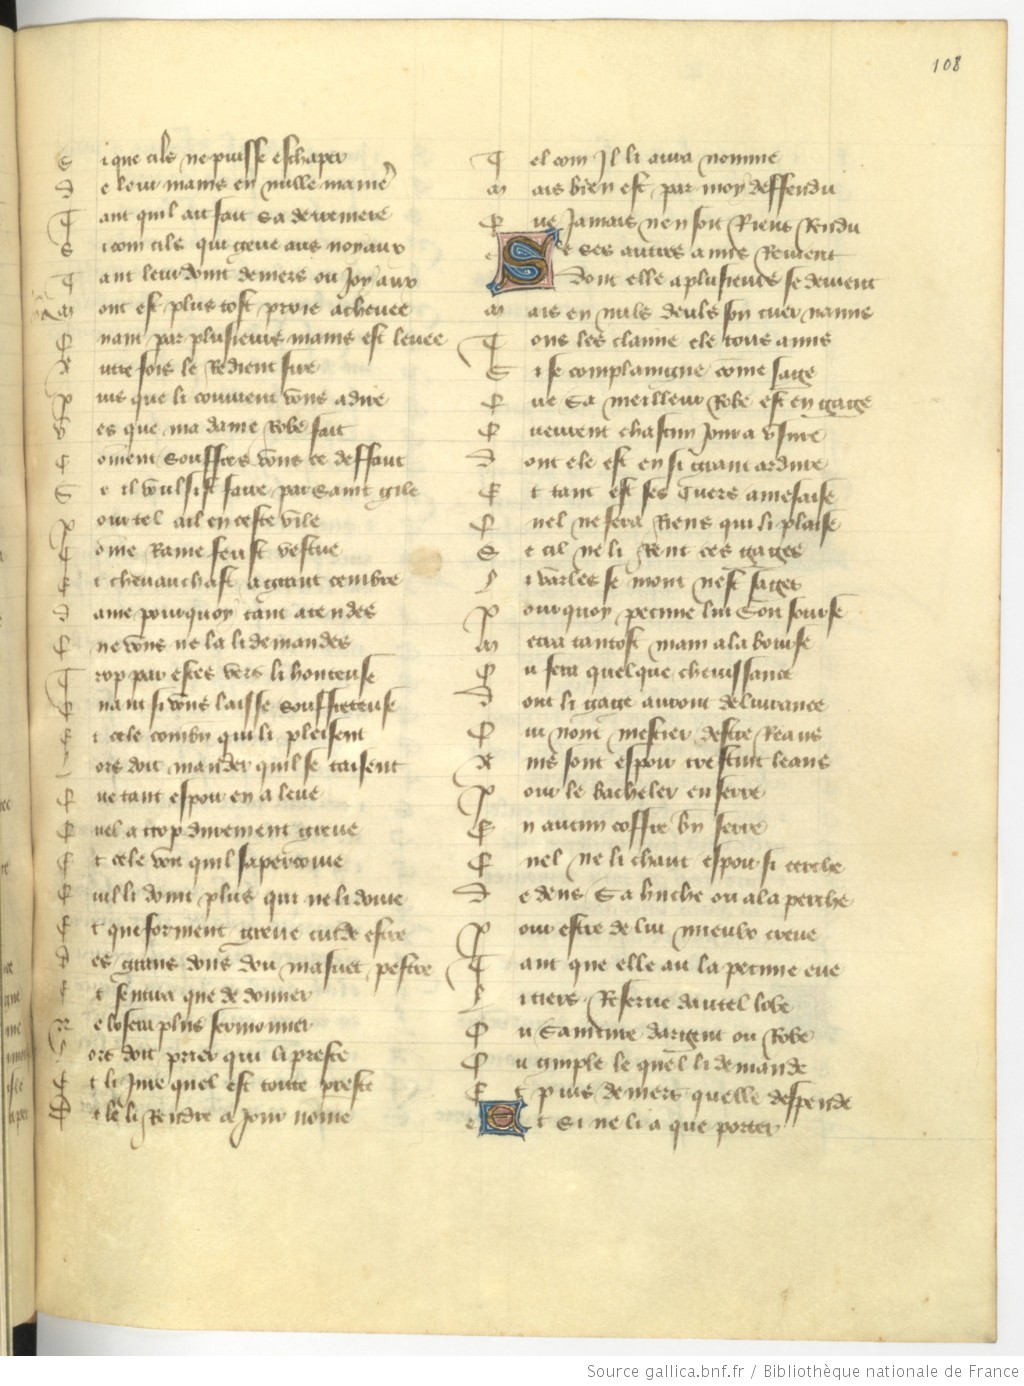 108
Si que cilz ne puisse eschaper
De leur mains en nulle maniere
Tant quil ait fait sa derreniere
Si com cilz qui geue aus noyaux
Tant leur doint deniers ou Joyaux
Mont est plus tost proie achevee
Quant par plusieurs mains est levee
Autre fois le Redient sire
Puis que li convient vous a dire
Ves que ma dame Robe fait
Coment souffres vous ce deffaut
Se il voulsist faire par saint gile
Pour tel a il en ceste vile
Come Rame feust vestue
Et chevauchast a grant
Dame pourquoy tant atendes
Que vous ne la li demandes
Trop par estes vers li honteuse
Quant si vous laisse souffreteuse
Et cele combn qui li pleisent
Lors doit mander quil se taisent
Que tant espoir en a leve
Quel a trop durement greve
Et cele voit quil sapercoive
Quil li doint plus qui ne li doive
Et qui forment greve cuide estre
Des grans dons dou masuet pestre
Et sentira que de donner
Ne losera plus sermonner
Lors doit prier qui li preste
Et li Jure quel est toute preste
De le li Rendre a Jour nome
Tel com Il li aura nomme
Mais bien est par moy deffendu
Que Jamais nen soit Riens Rendu
Se ses autres amis Revient
Dont elle a plusieurs se devient
Mais en nulz deulz son cuer na mis
Tous les claime ele tous amis
Si se complaingne come sage
Que sa meilleur Robe est en gage
Queurent chascun Jour a usure
Dont ele est en si grant ardure
Et tant est ses cuers a mesaise
Quel ne fera Riens qui li plaise
Se cil ne li Rent ces gages
Li varles se mont nest sages
Pour quoy pecune lui soit sourse
Metra tantost main a la bourse
Ou fera quelque chevissance
Dont li gage auront delivrance
Qui nont mestier destre Reans
Ains sont espoir trestuit leans
Pour le bacheler enserre
En aucun coffre bn serre
Quel ne li chaut espoir si cerche
Dedens sa huche ou a la perche
Pour estre de lui mieulx creue
Tant que elle ait la pecune eue
Li tiers Reserve dautel lobe
Ou sainture dargent ou Robe
Ou guimple le quel li demande
Et puis deniers quelle despende
Et si ne li a que porter
Source gallica.bnf.fr / Bibliothèque nationale de France